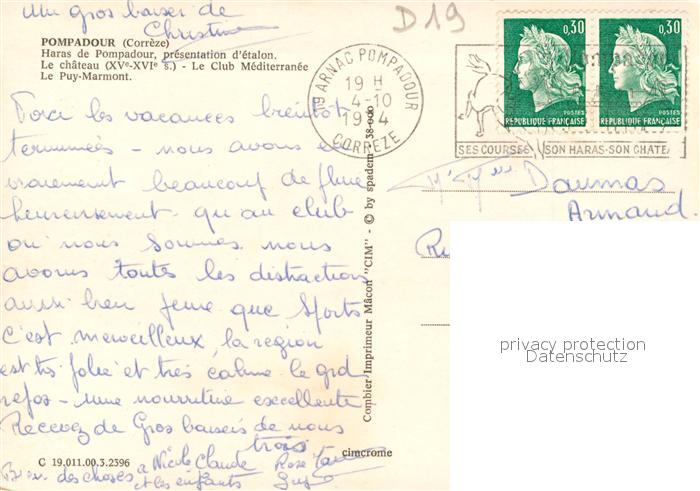 Un gros baiser de
Christine
D19
POMPADOUR (Corrèze)
Haras de Pompadour, présentation d'étalon.
Le château (XVe-XVIe s.) - Le Club Méditerranée
Le Puy-Marmont.
19 ARNAC POMPADOUR
19 H
4-10
1974
CORREZE
0,30
0,30
POSTES
POSTES
REPUBLIQUE FRANÇAISE
REPUBLIQUE FRANÇAISE
SES COURSES SON HARAS-SON CHATE
Voici les vacances bientôt
terminées - nous avons eu
vraiement beaucoup de pluie
heureusement qu'au club
où nous sommes nous
avons toutes les distractions
aussi bien jeux que sports
C'est merveilleux, la région
est très jolie et très calme le grd
repos - une nourriture excellente
Recevez de Gros baisers de nous
trois
Bien des choses à Nicole Claude
et les enfants
Rose
Combier Imprimeur Mâcon "CIM" - © by spadem 38-000
Mr Mme Daumas
Armand
privacy protection
Datenschutz
C 19.011.00.3.2396
cimcrome